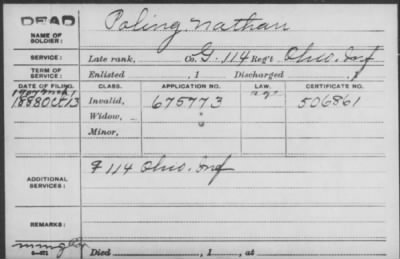 DEAD
Poling Nathan
NAME OF SOLDIER:
SERVICE:
Late rank, Co. G. 114 Reg't Ohio. Inf
TERM OF SERVICE:
Enlisted , 1 Discharged , 1
DATE OF FILING.
CLASS.
APPLICATION NO.
LAW.
CERTIFICATE NO.
1888 Oct 13
Invalid,
675773
506861
Widow,
Minor,
ADDITIONAL SERVICES:
F 114 Ohio. Inf
REMARKS:
Died , 1 , at